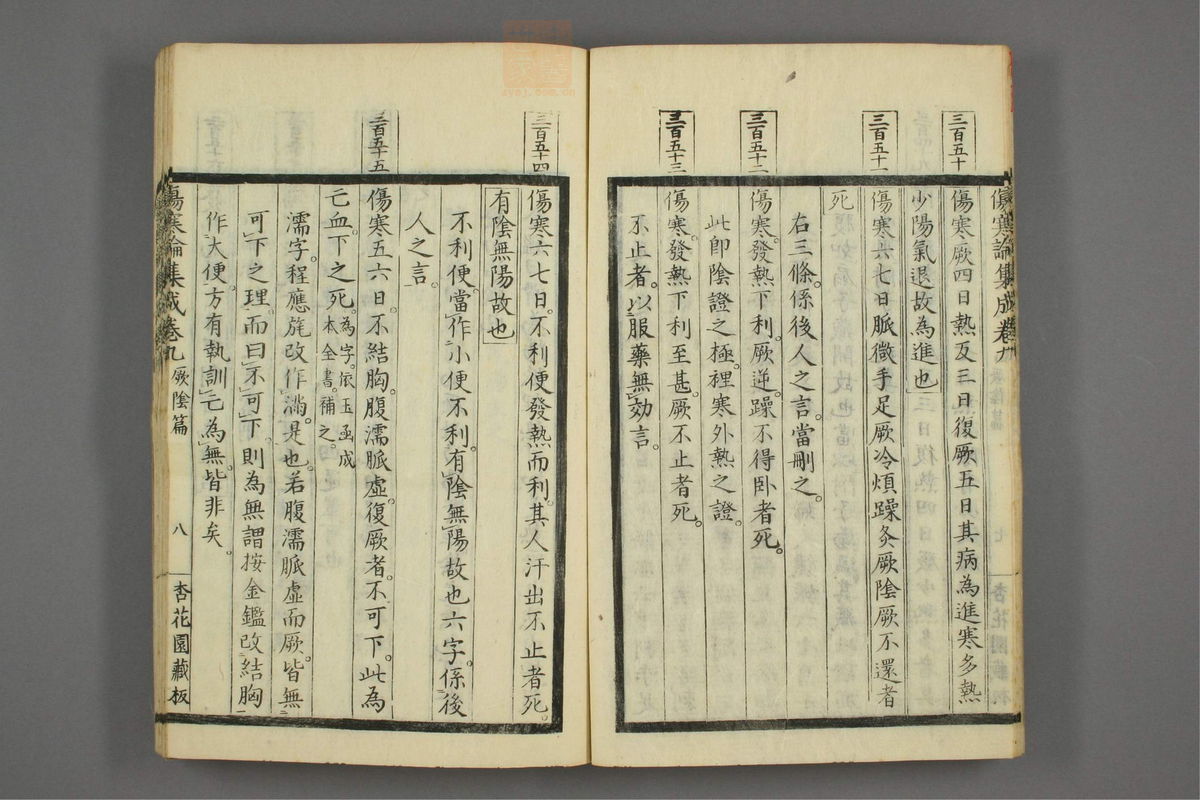 三百五十
傷寒厥四日熱反三日復厥五日其病為進寒多熱
少陽氣退故為進也
三百五十一
傷寒六七日脈微手足厥冷煩躁灸厥陰厥不還者
死
右三條係後人之言當刪之。
三百五十二
傷寒。發熱下利。厥逆。躁不得卧者死。
此卽陰證之極。裡寒外熱之證。
三百五十三
傷寒。發熱下利至甚。厥不止者死。
不止者。以服藥無効言。
傷寒論集成卷九
三百五十四
傷寒六七日。不利便發熱而利。其人汗出不止者死。
有陰無陽故也
不利便。當作小便不利。有陰無陽故也六字。係後
人之言。
三百五十五
傷寒五六日。不結胸。腹濡脈虛。復厥者。不可下。此為
亡血。下之死。為字。依玉函成
本全書。補之。
濡字。程應旄改作滿。是也。若腹濡脈虛而厥。皆無
可下之理。而曰不可下。則為無謂。按金鑑改結胸
作大便。方有執訓亡為無。皆非矣。
傷寒論集成卷九 厥陰篇 八 杏花園藏板